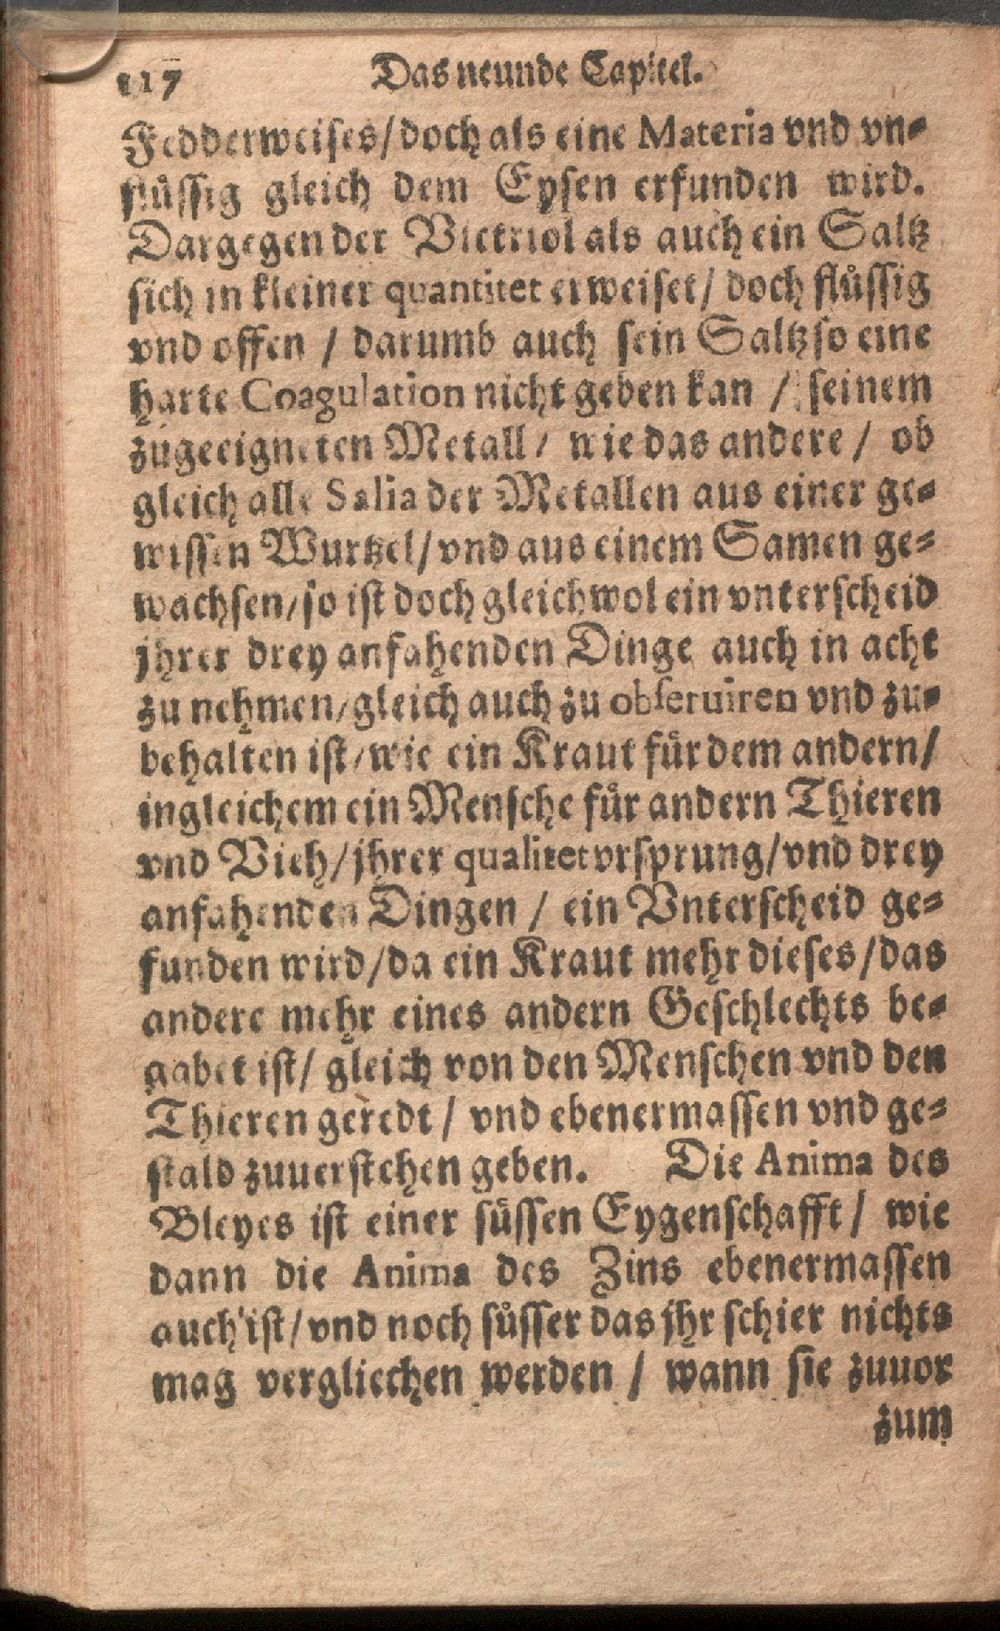 117 Das neunde Capitel.
Fedderweises/doch als eine Materia vnd vn-
flüssig gleich dem Eysen erfunden wird.
Dargegen der Victriol als auch ein Saltz
sich in kleiner quantitet erweiset/ doch flüssig
vnd offen / darumb auch sein Saltz so eine
harte Coagulation nicht geben kan / seinem
zugeeigneten Metall/ wie das andere/ ob
gleich alle Salia der Metallen aus einer ge-
wissen Wurtzel/vnd aus einem Samen ge-
wachsen/so ist doch gleichwol ein vnterscheid
jhrer drey anfahenden Dinge auch in acht
zu nehmen/gleich auch zu obseruiren vnd zu-
behalten ist/wie ein Kraut für dem andern/
ingleichem ein Mensche für andern Thieren
vnd Vieh/jhrer qualitet vrsprung/vnd drey
anfahenden Dingen / ein Vnterscheid ge-
funden wird/da ein Kraut mehr dieses/das
andere mehr eines andern Geschlechts be-
gabet ist/ gleich von den Menschen vnd den
Thieren geredt / vnd ebenermassen vnd ge-
stald zuuerstehen geben. Die Anima des
Bleyes ist einer süssen Eygenschafft/ wie
dann die Anima des Zins ebenermassen
auch ist/vnd noch süsser das jhr schier nichts
mag vergliechen werden / wann sie zuuor
zum